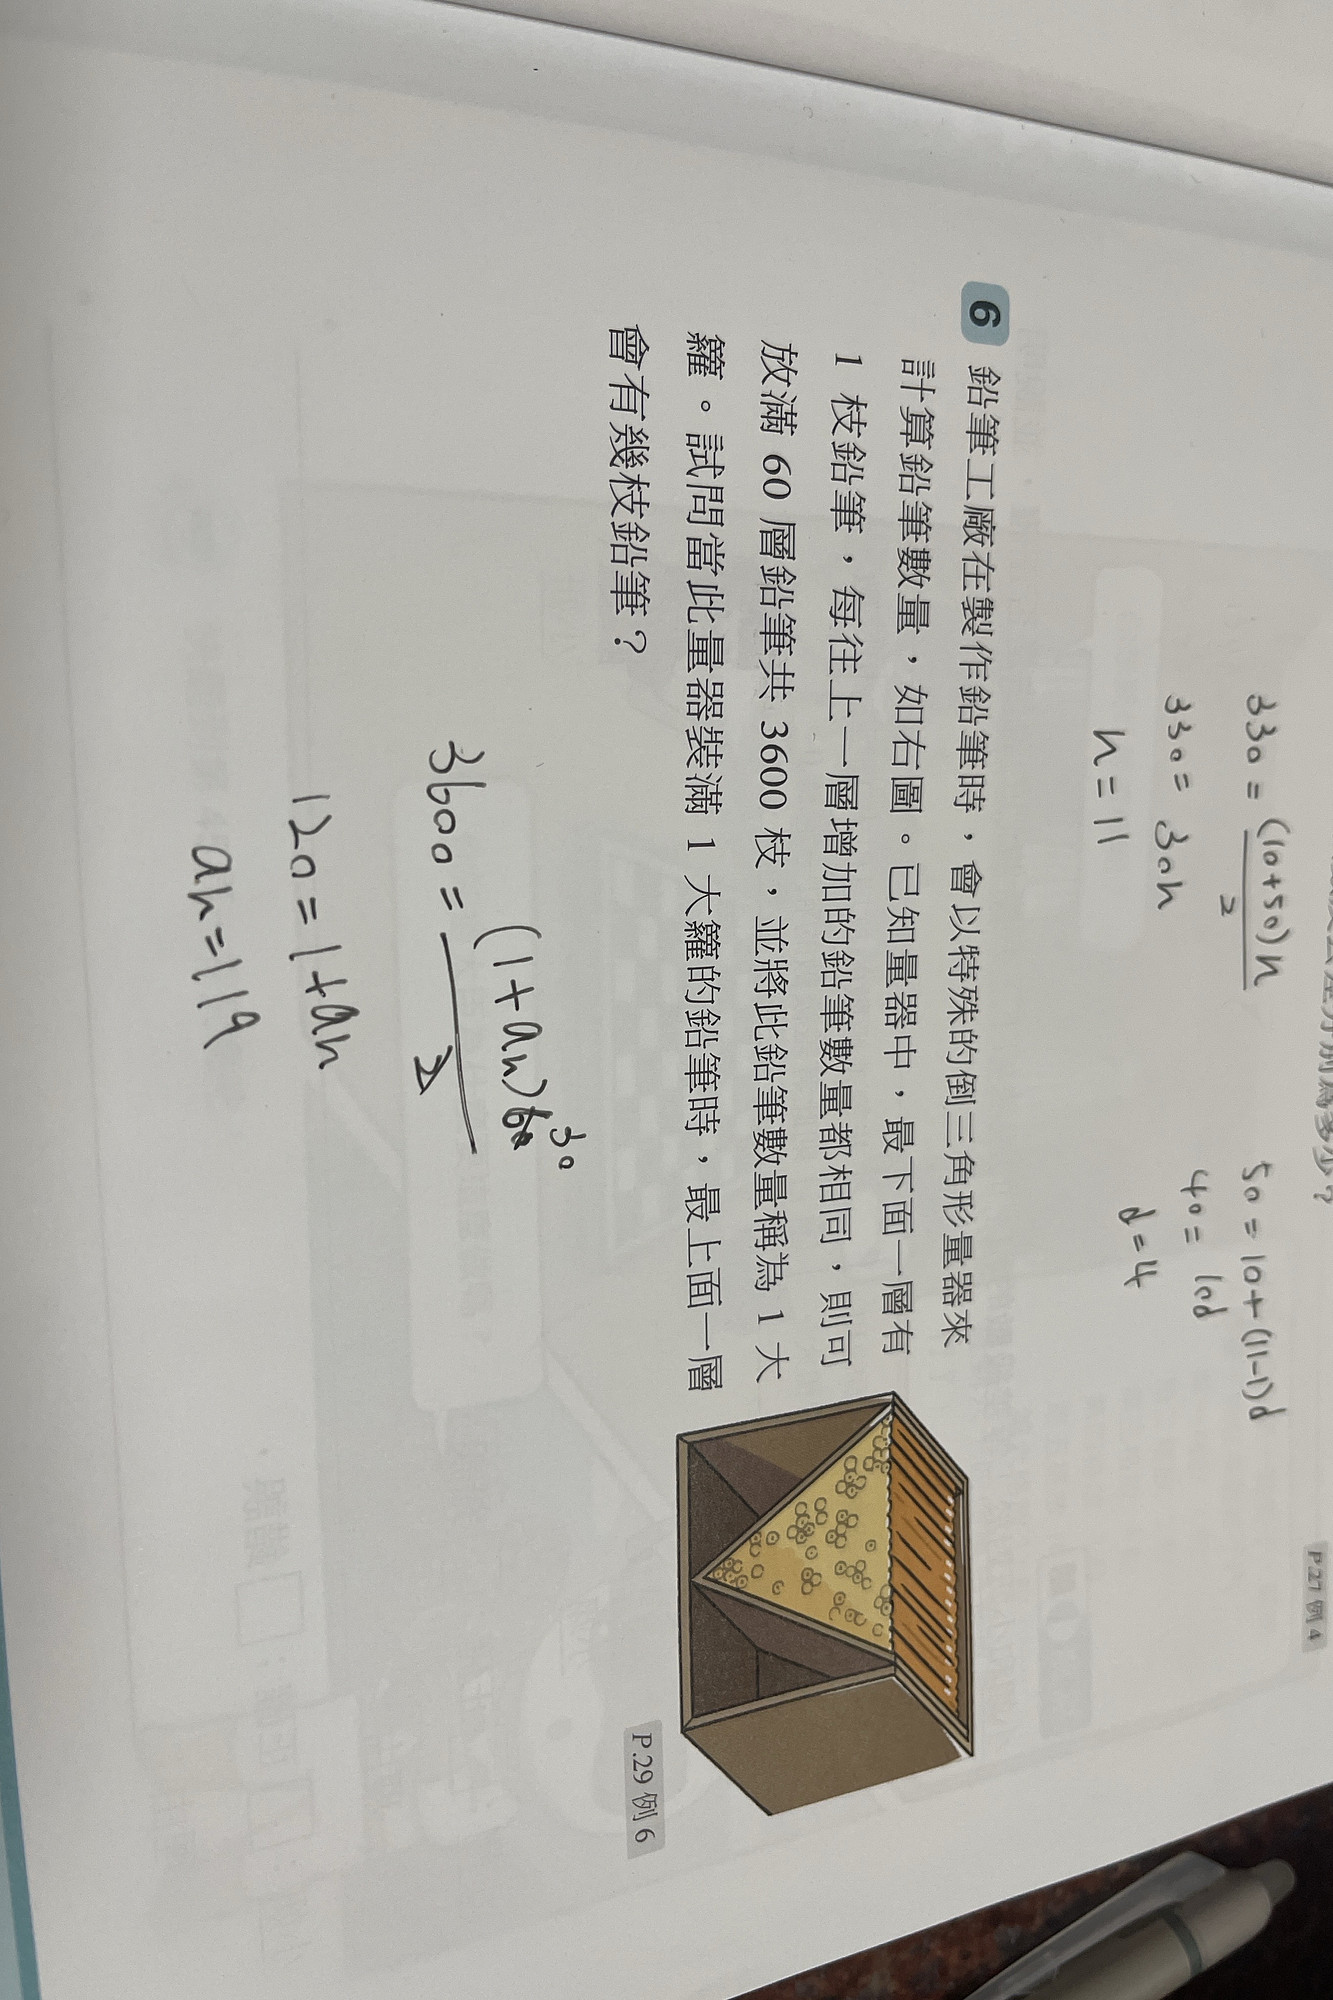 330 = (10+50)n / 2
330 = 30n
n = 11
50 = 10+(11-1)d
40 = 10d
d = 4
P.27 例 4
6 鉛筆工廠在製作鉛筆時，會以特殊的倒三角形量器來
計算鉛筆數量，如右圖。已知量器中，最下面一層有
1 枝鉛筆，每往上一層增加的鉛筆數量都相同，則可
放滿 60 層鉛筆共 3600 枝，並將此鉛筆數量稱為 1 大
籮。試問當此量器裝滿 1 大籮的鉛筆時，最上面一層
會有幾枝鉛筆？
P.29 例 6
3600 = (1+an)60 / 2
30
120 = 1+an
an = 119